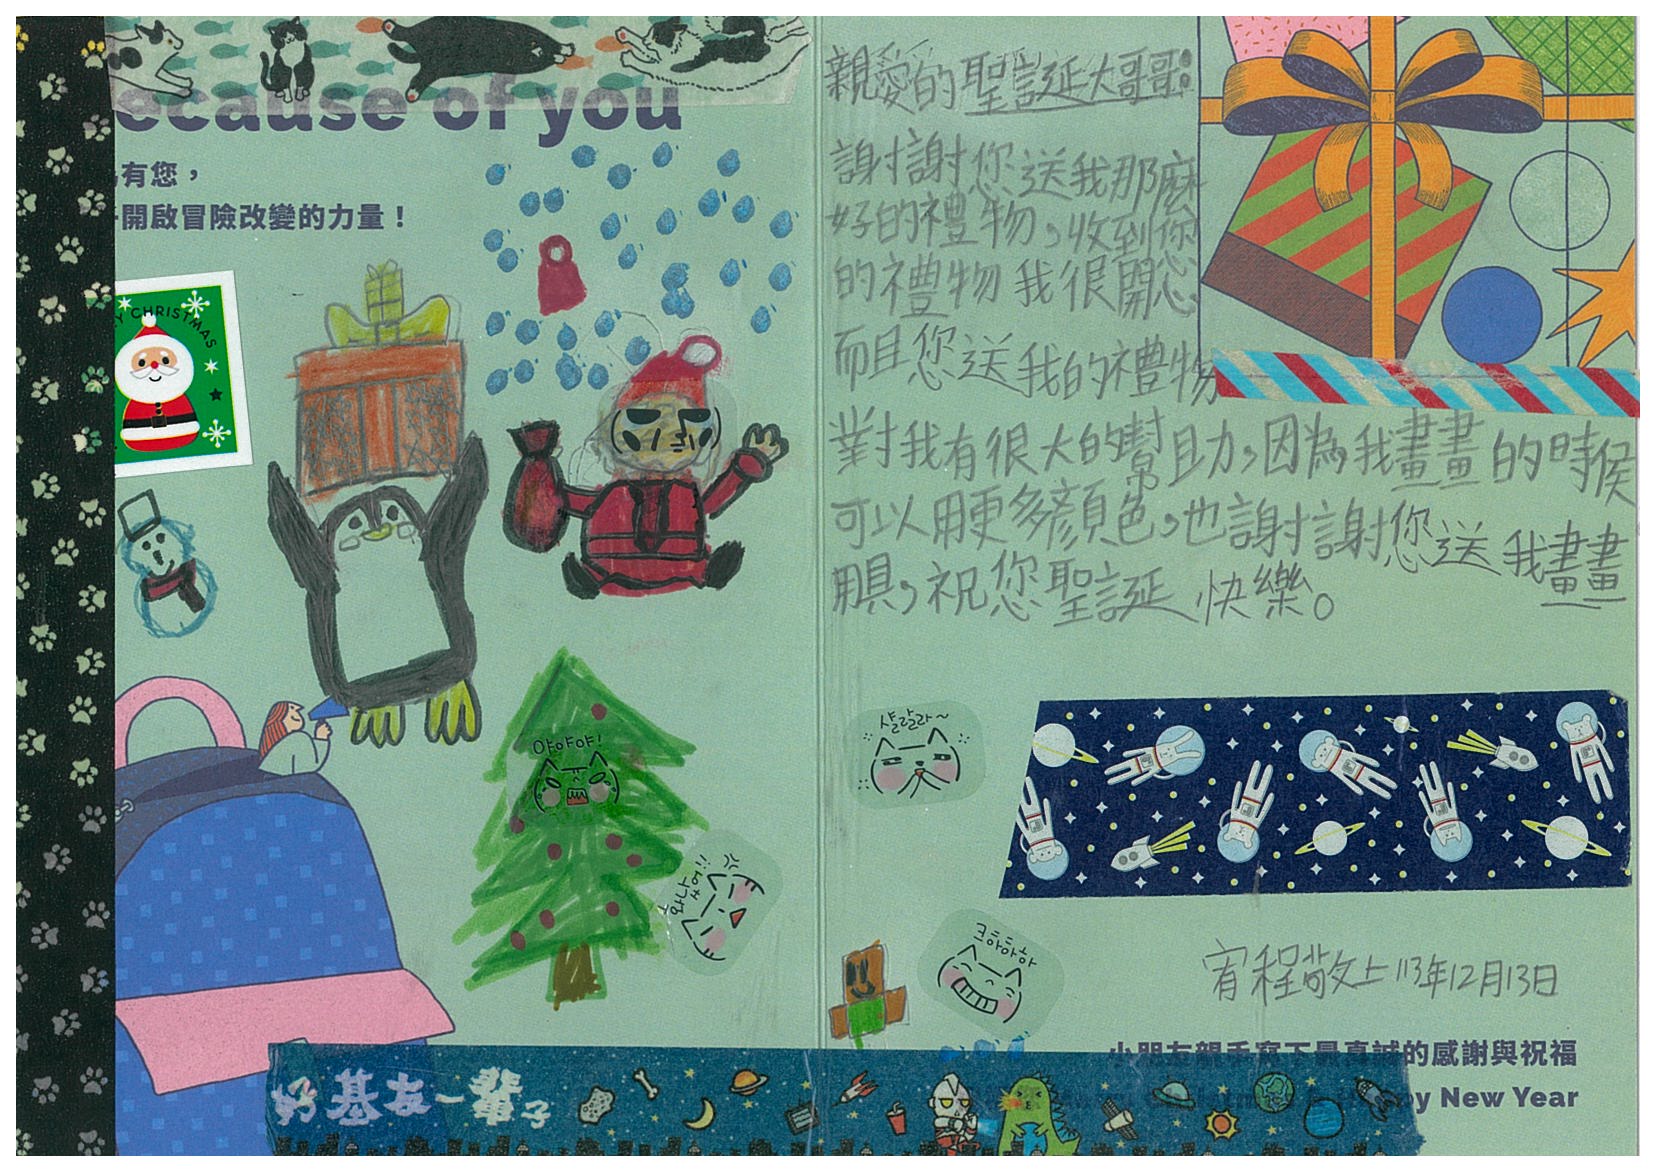 ecause of you
有您，
開啟冒險改變的力量！
Y CHRISTMAS
야야야!
親愛的聖誕大哥哥：
謝謝您送我那麼
好的禮物，收到您
的禮物我很開心
而且您送我的禮物
對我有很大的幫助，因為我畫畫的時候
可以用更多顏色，也謝謝您送我畫畫
用具，祝您聖誕快樂。
샬랄라~
크하하하
宥程敬上 113年12月13日
小朋友親手寫下最真誠的感謝與祝福
py New Year
好基友一輩子